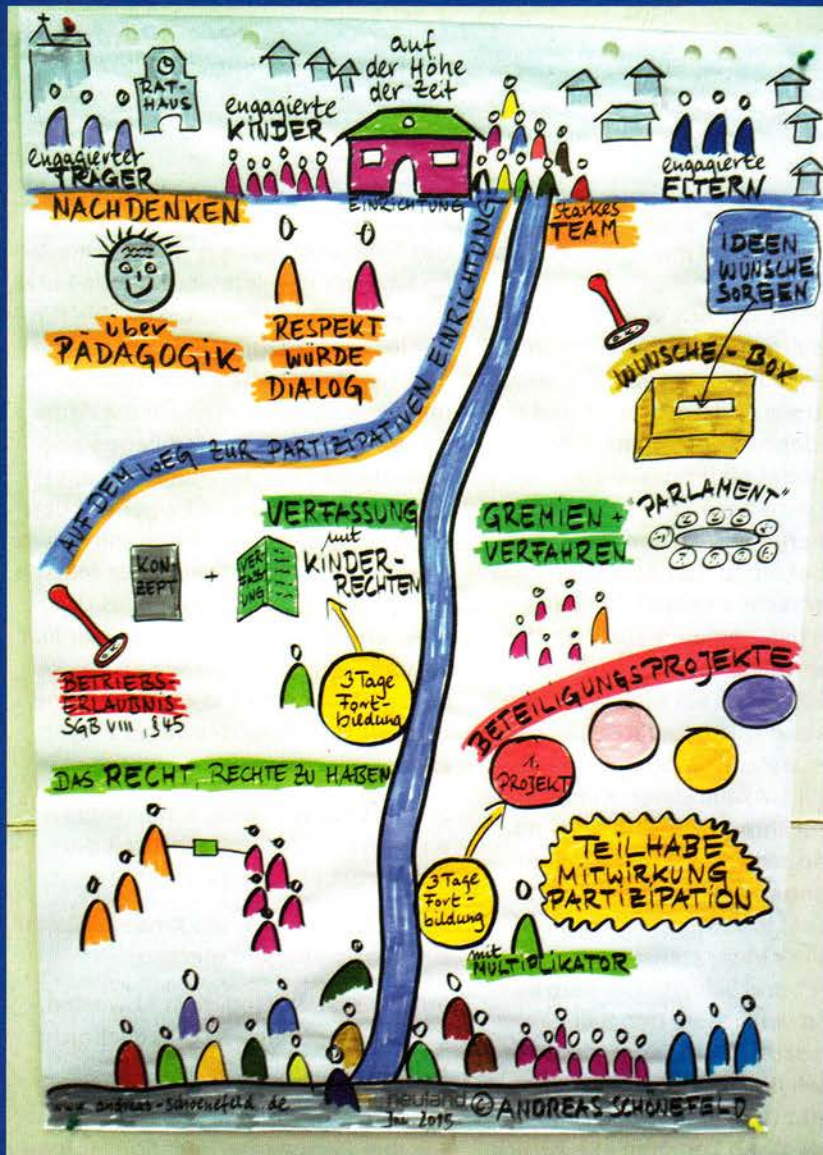 auf
der Höhe
der Zeit
RAT-
HAUS
engagierte
KINDER
engagierter
TRÄGER
engagierte
ELTERN
EINRICHTUNG
NACHDENKEN
über
PÄDAGOGIK
RESPEKT
WÜRDE
DIALOG
starkes
TEAM
IDEEN
WÜNSCHE
SORGEN
WÜNSCHE-BOX
AUF DEM WEG ZUR PARTIZIPATIVEN EINRICHTUNG
KON-
ZEPT
+
VER-
FASS-
UNG
VERFASSUNG
mit
KINDER-
RECHTEN
GREMIEN +
VERFAHREN
"PARLAMENT"
BETRIEBS-
ERLAUBNIS
SGB VIII, §45
3 Tage
Fort-
bildung
BETEILIGUNGSPROJEKTE
1.
PROJEKT
DAS RECHT, RECHTE ZU HABEN
3 Tage
Fort-
bildung
TEILHABE
MITWIRKUNG
PARTIZIPATION
mit
MULTIPLIKATOR
www.andreas-schoenefeld.de
neuland
2015
© ANDREAS SCHÖNEFELD